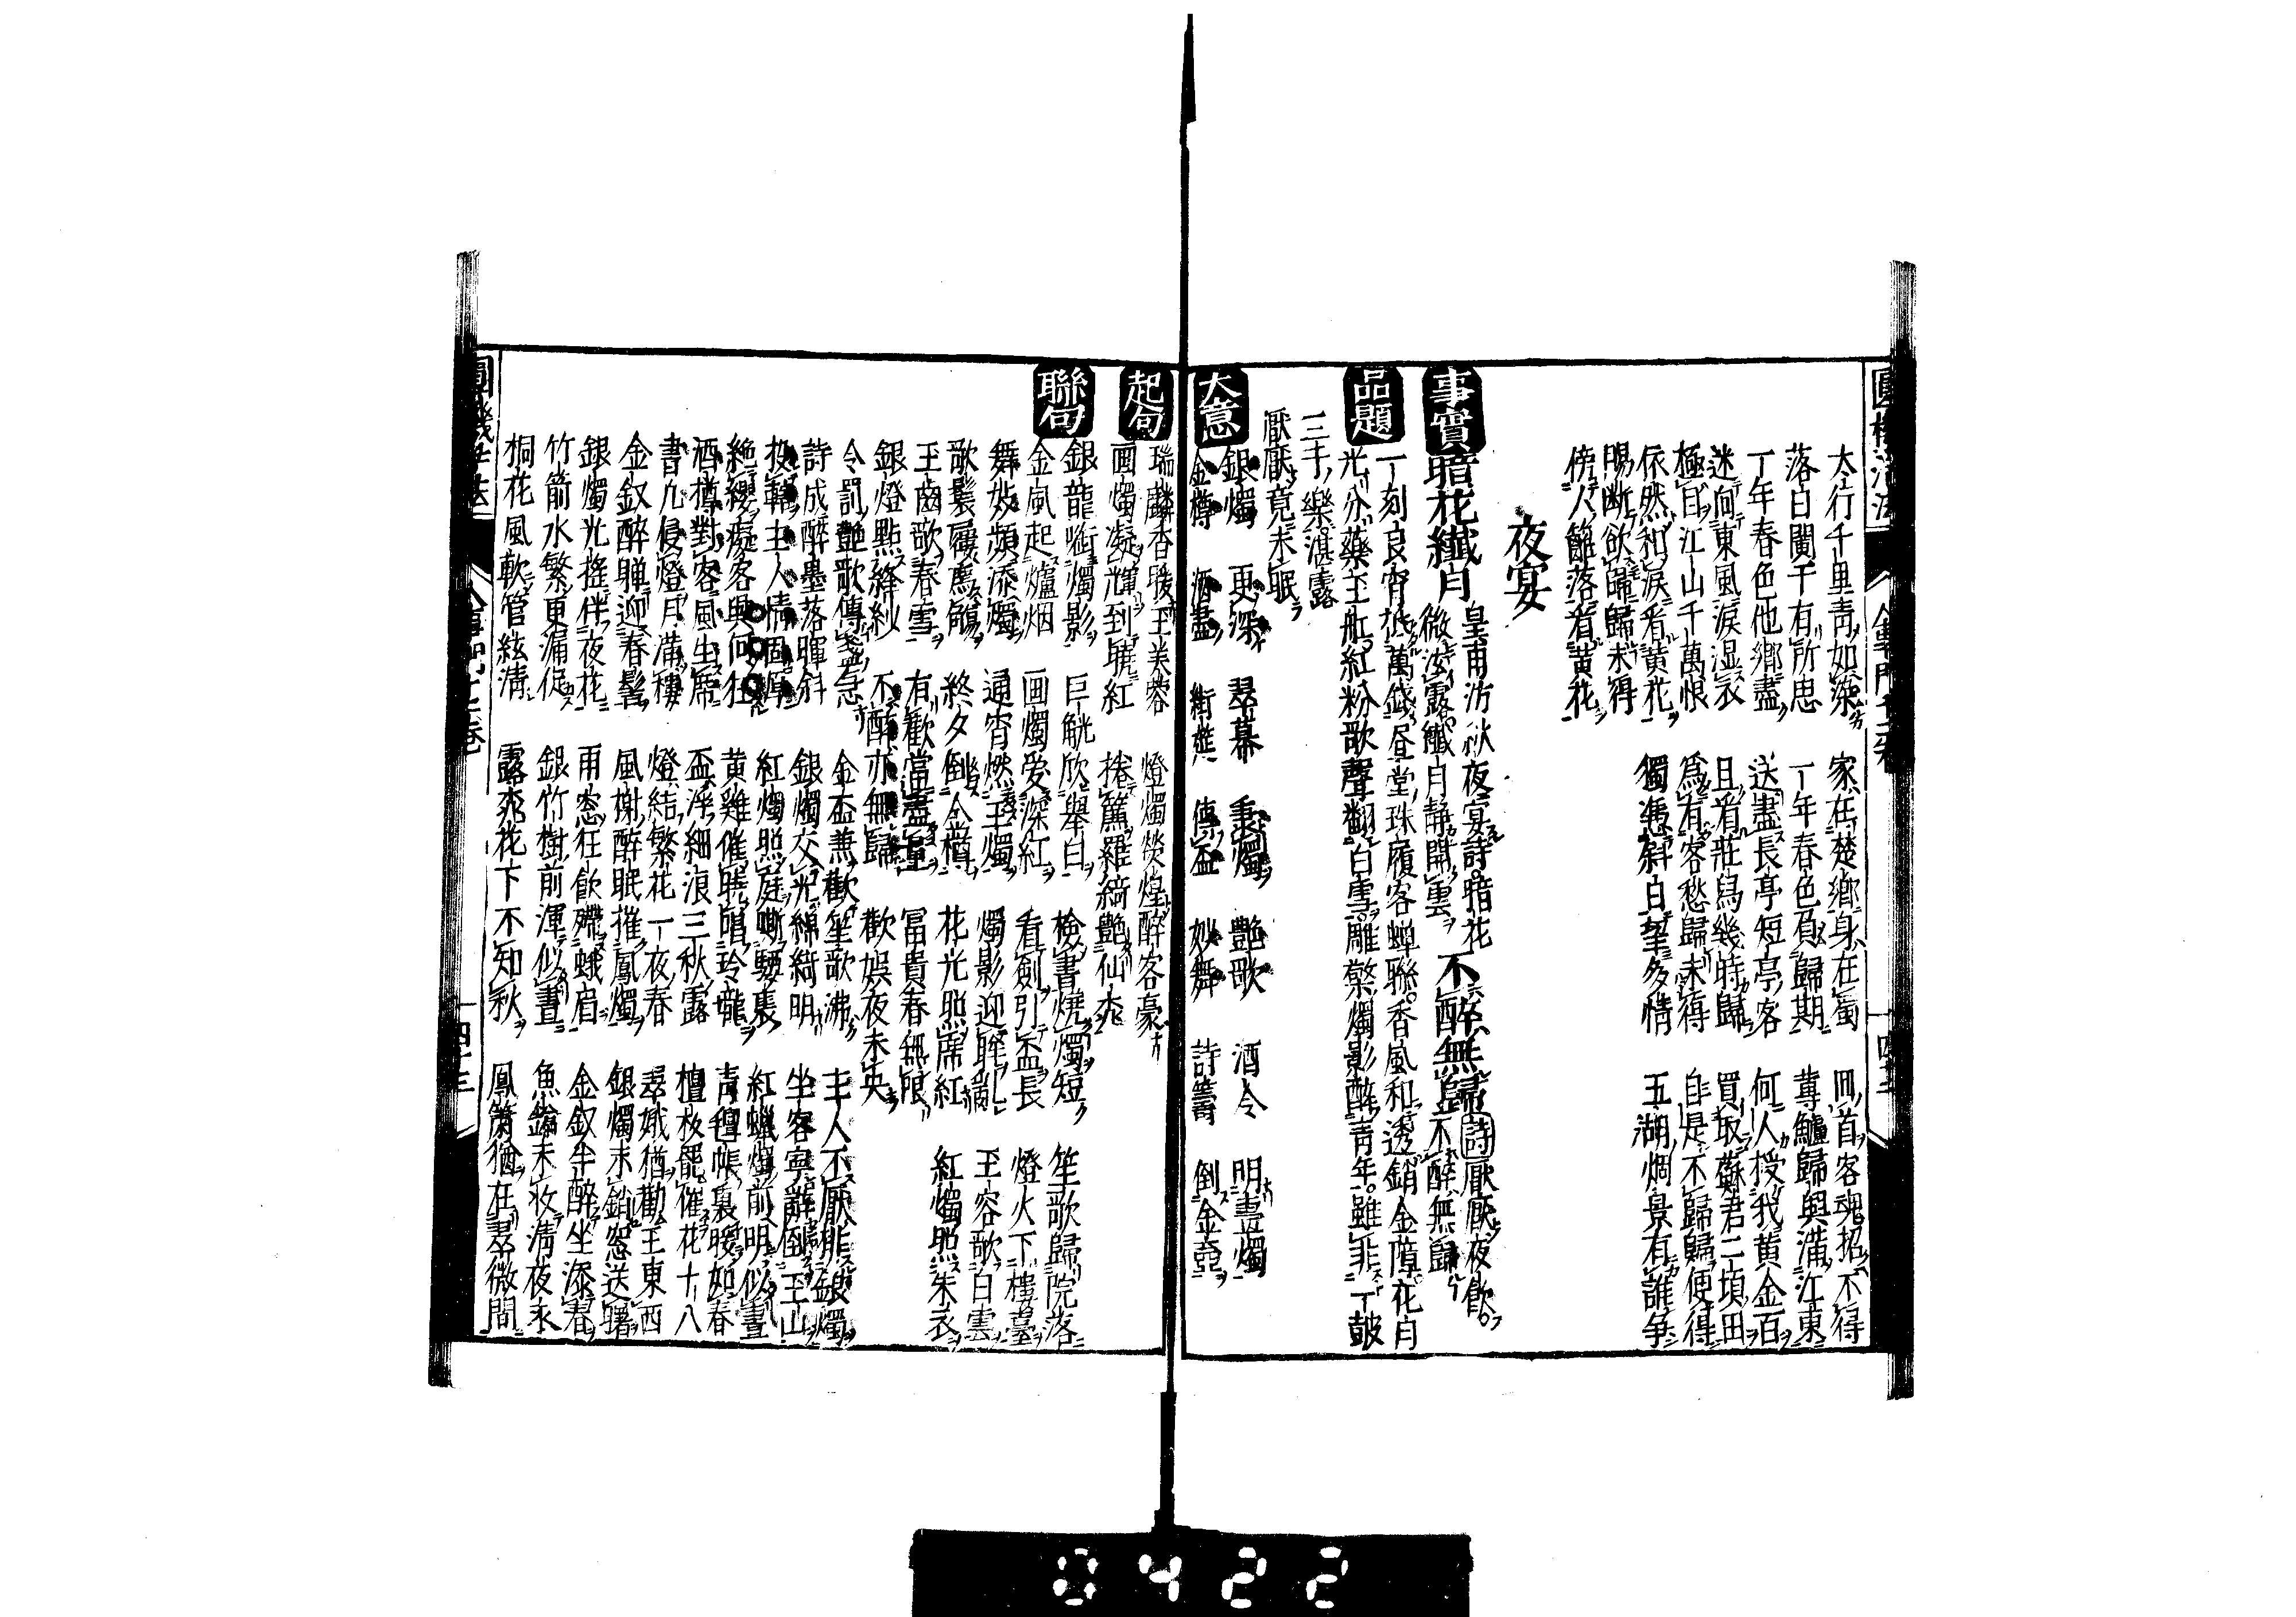 太行千里青如染　家在楚鄉身在蜀　回首客魂招不得
落日闌干有所思　一年春色負歸期　蓴鱸歸與滿江東
一年春色他鄉盡　送盡長亭短亭客　何人授我黃金百
迷向東風淚湿衣　且看莊舄幾時歸　買取蘇君二頃田
極目江山千萬恨　為有客愁歸未得　自是不歸歸便得
依然和淚看黃花　獨憑斜日望多情　五湖烟景有誰爭
腸断欲歸歸未得
傍人籬落看黃花
夜宴
事實
暗花纖月　皇甫汸秋夜宴詩暗花微泫露纖月静開雲　不醉無歸　詩厭厭夜飲不醉無歸
品題
一刻良宵抵萬錢昼堂珠履客蝉聯香風和透銷金障花月
光分藥玉舡紅粉歌聲翻白雪雕檠燭影醉青年雖非一鼓
三千樂湛露
厭厭竟未眠
大意
銀燭　更深　翠幕　秉燭　艶歌　酒令　明晝燭
金樽　酒盡　　傳盃　妙舞　詩籌　倒金壺
起句
瑞麟香暖玉美蓉　燈燭熒煌醉客豪
画燭凝輝到曉紅　捲簾羅綺艶仙桃
聯句
銀龍啣燭影　巨觥欣舉白　檢書燒燭短　笙歌歸院落
金風起爐烟　画燭愛深紅　看劍引盃長　燈火下樓臺
舞妓頻添燭　通宵燃玉燭　燭影迎眸亂　玉容歌白雲
歌鬟屢薦觴　終夕倒金樽　花光照席紅　紅燭照朱衣
玉齒歌春雪　有歡當盡量　冨貴春無限
銀燈點絳紗　不醉亦無歸　歡娯夜未央
令罰艶歌傳盞急　金盃兼歡笙歌沸　主人不厭非銀燭
詩成醉墨落暉斜　銀燭交光綿綺明　坐客寧辭倒玉山
投轄主人情固厚　紅燭照庭嘶騕褭　紅蠟燭前明似晝
絶纓痴客興何狂　黃雞催曉唱玲瓏　青氊帳裏暖如春
酒樽對客風生席　盃浮細浪三秋露　檀板能催花十八
書几侵燈月滿樓　燈結繁花一夜春　翠娥猶勸玉東西
金釵醉嚲迎春髻　風榭醉眠摧鳳燭　銀燭未銷窓送曙
銀燭光摇伴夜花　雨窓狂飲殢蛾眉　金釵半醉坐添春
竹箭水繁更漏促　銀竹樹前渾似晝　魚鑰未收淸夜永
桐花風軟管絃淸　露桃花下不知秋　鳳簫猶在翠微間
0422